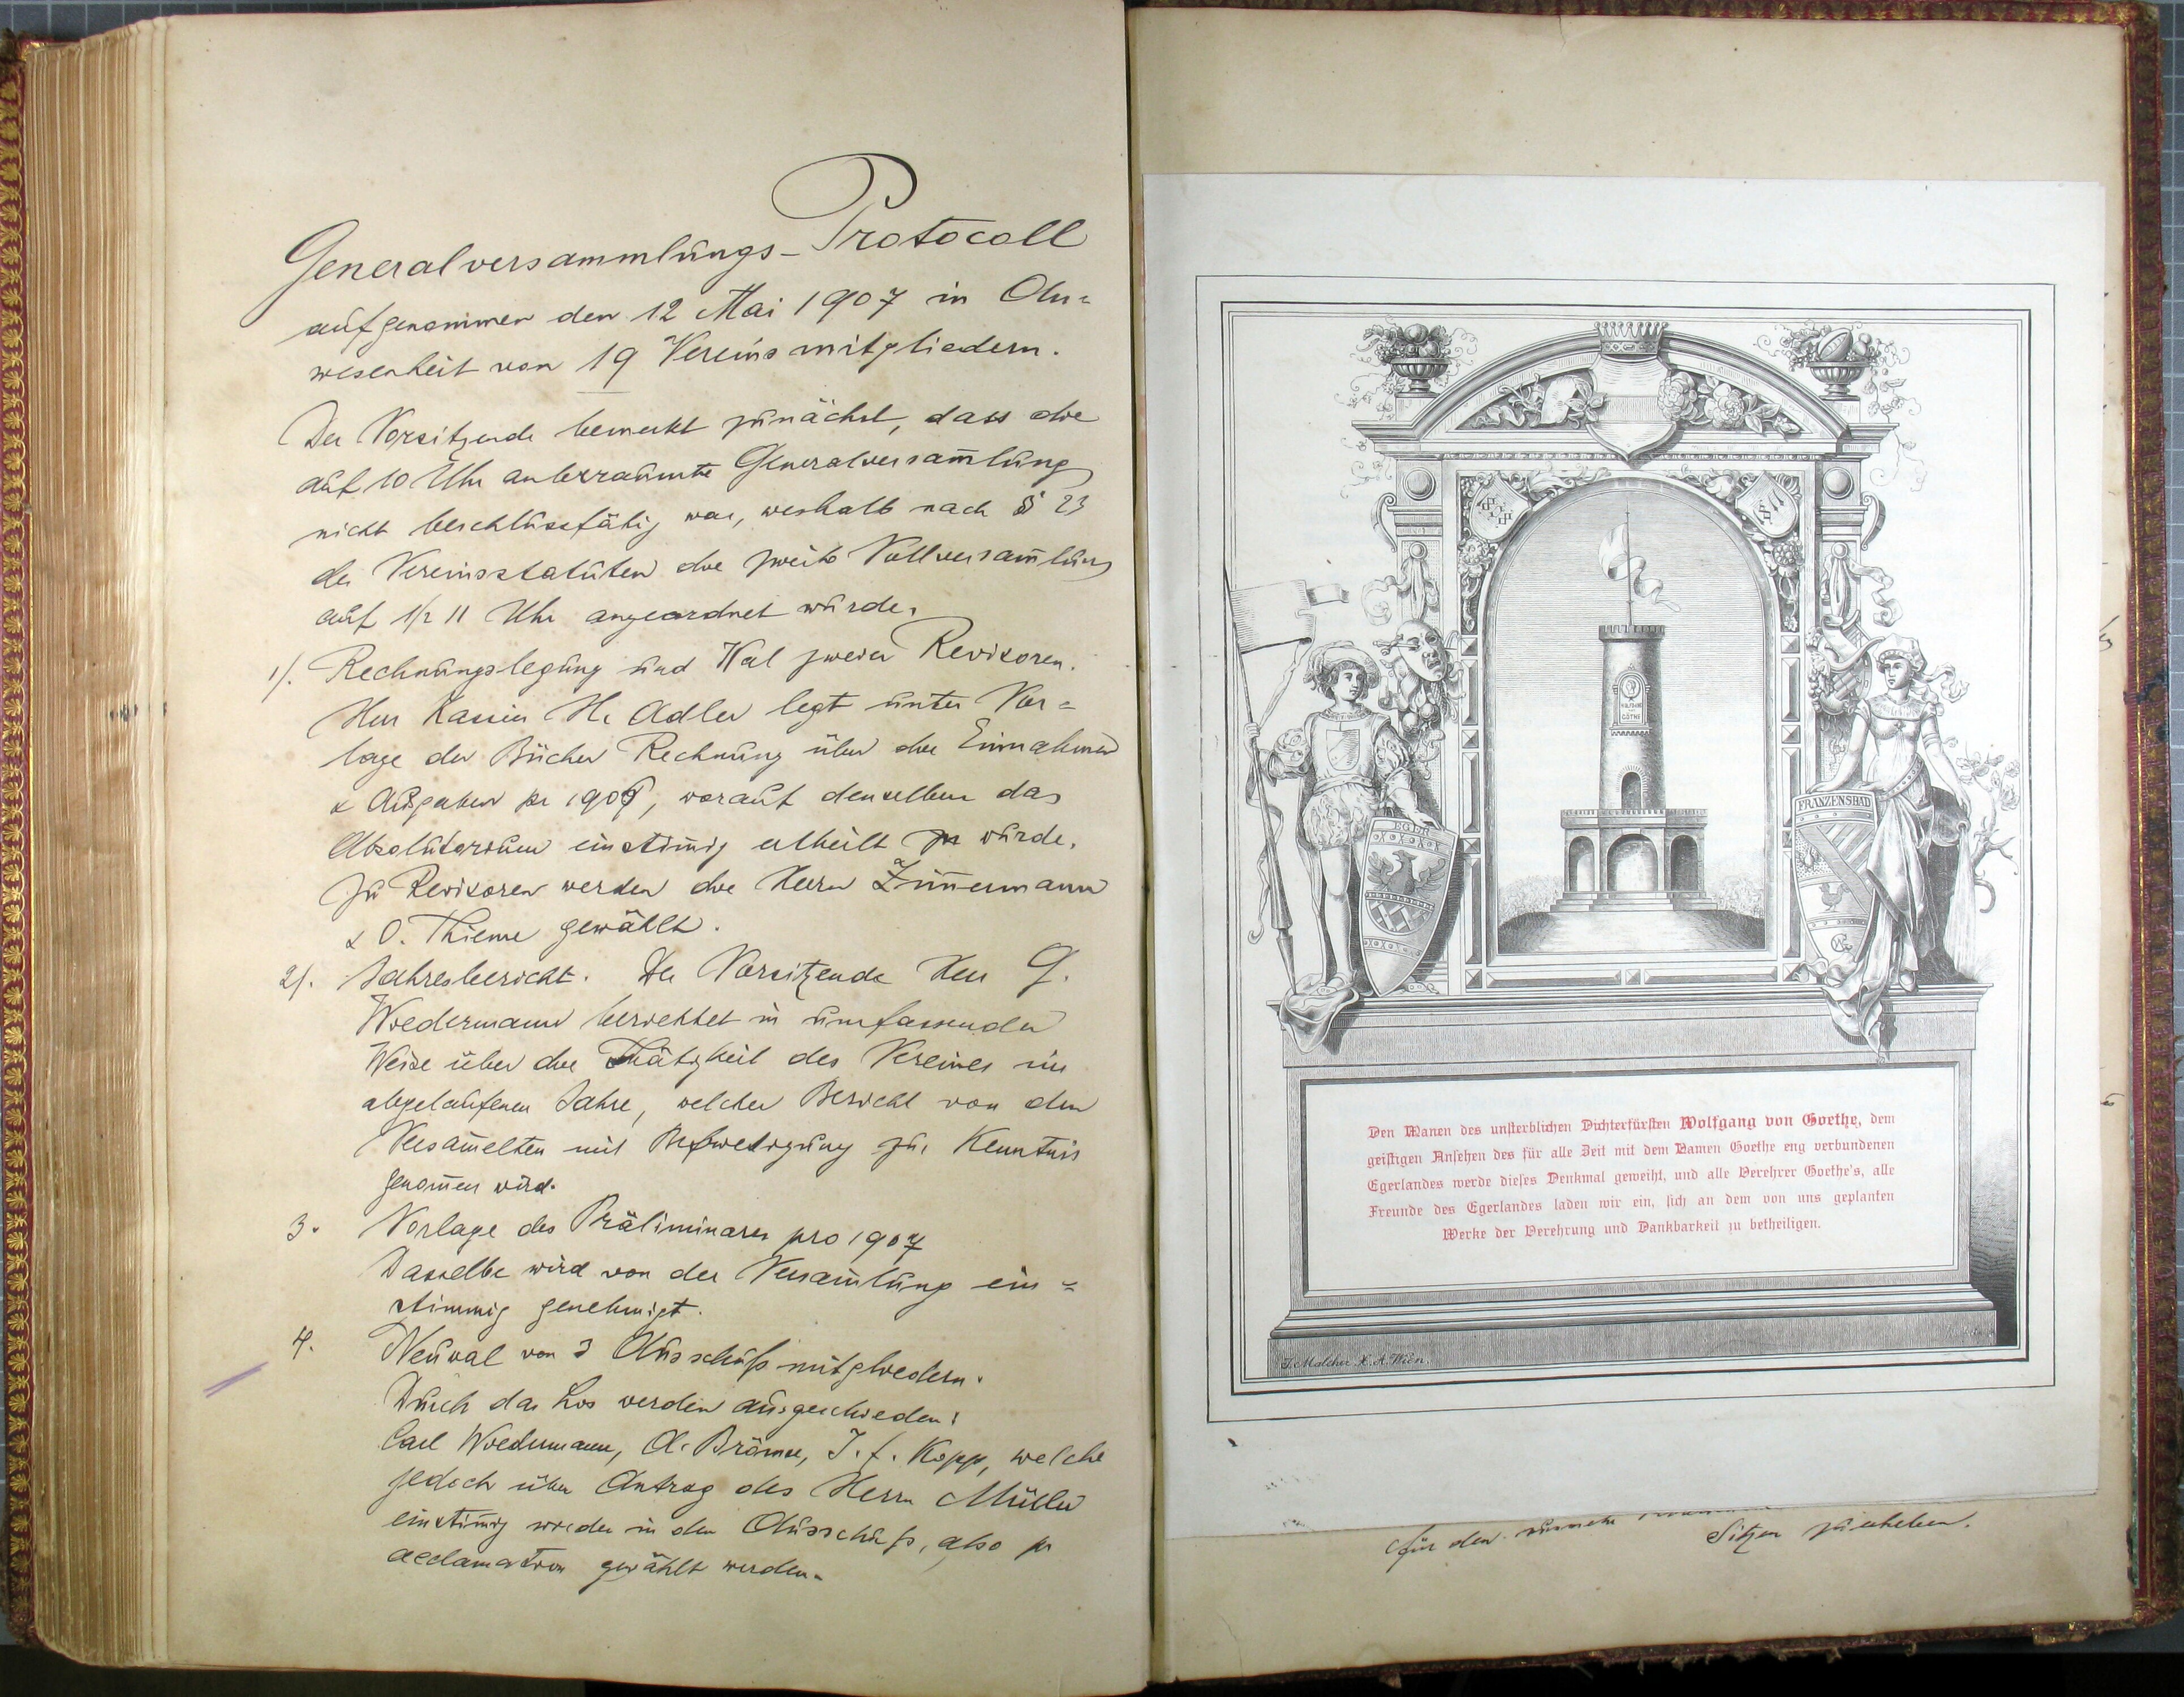 Generalversammlungs-Protocoll
aufgenommen den 12 Mai 1907 in An=
wesenheit von 19 Vereinsmitgliedern.
Der Vorsitzende bemerkt zunächst, dass die
auf 10 Uhr anberraumte Generalversam̄lung
nicht beschlussfähig war, weshalb nach § 23
der Vereinsstatuten die zweite Vollversam̄lung
auf 1/2 11 Uhr angeordnet wurde.
1/. Rechnungslegung und Wal zweier Revisoren.
Herr Kassier H. Adler legt unter Vor=
lage der Bücher Rechnung über die Einnahmen
& Ausgaben pr 1906, worauf demselben das
Absolutorium einstim̄ig ertheilt wurde.
Zu Revisoren werden die Herrn Zim̄ermann
& O. Thieme gewählt.
2/. Jahresbericht. Der Vorsitzende Herr G.
Wiedermann berichtet in umfassender
Weise über die Thätigkeit des Vereines im
abgelaufenen Jahre, welcher Bericht von den
Versam̄elten mit Befriedigung zur Kenntnis
genom̄en wird.
3. Vorlage des Präliminares pro 1907
Dasselbe wird von der Versam̄lung ein=
stimmig genehmigt.
4. Neuwal von 3 Ausschußmitgliedern.
Durch das Los werden ausgeschieden:
Carl Wiedermann, A. Brömse, J. f. Kopp, welche
jedoch über Antrag des Herrn Müller
einstim̄ig wieder in den Ausschuß, also pr
acclamation gewählt werden.
1888
EGER
FRANZENSBAD
WOLFGANG
GÖTHE
Den Manen des unsterblichen Dichterfürsten Wolfgang von Goethe, dem
geistigen Ansehen des für alle Zeit mit dem Namen Goethe eng verbundenen
Egerlandes werde dieses Denkmal geweiht, und alle Verehrer Goethe's, alle
Freunde des Egerlandes laden wir ein, sich an dem von uns geplanten
Werke der Verehrung und Dankbarkeit zu betheiligen.
J. Malcher X. A. Wien.
für den
Sitzen zu erheben.